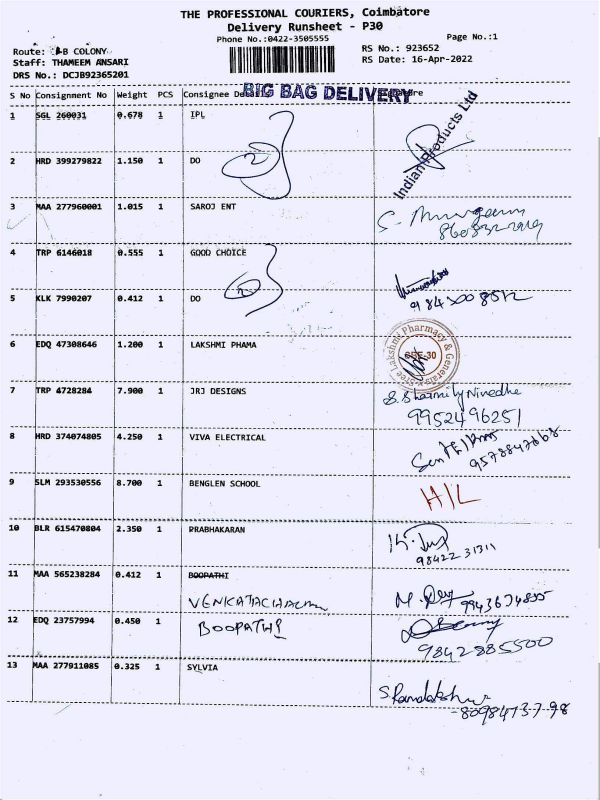 THE PROFESSIONAL COURIERS, Coimbatore
Delivery Runsheet - P30
Phone No.:0422-3505555
Page No.:1
Route: B COLONY
RS No.: 923652
Staff: THAMEEM ANSARI
RS Date: 16-Apr-2022
DRS No.: DCJB92365201
S No Consignment No Weight PCS Consignee
BIG BAG DELIVERY
1 SGL 260031 0.678 1 IPL
Indian Products Ltd
2 HRD 399279822 1.150 1 DO
3 MAA 277960001 1.015 1 SAROJ ENT
4 TRP 6146018 0.555 1 GOOD CHOICE
5 KLK 7990207 0.412 1 DO
6 EDQ 47308646 1.200 1 LAKSHMI PHAMA
Sree Lakshmi Pharmacy & Generals
CBE-30
7 TRP 4728284 7.900 1 JRJ DESIGNS
9952496251
8 HRD 374074805 4.250 1 VIVA ELECTRICAL
9 SLM 293530556 8.700 1 BENGLEN SCHOOL
H/L
10 BLR 615470804 2.350 1 PRABHAKARAN
98422 31311
11 MAA 565238284 0.412 1 BOOPATHI
VENKATACHALAM
12 EDQ 23757994 0.450 1 BOOPATHI
9842885500
13 MAA 277911085 0.325 1 SYLVIA